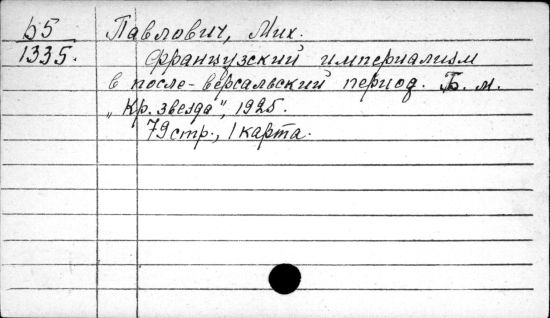 Б5 Павлович, Мих.
1335. Французский империализм
в после-версальский период. Б. м.
„Кр. звезда", 1925.
79 стр., 1 карта.